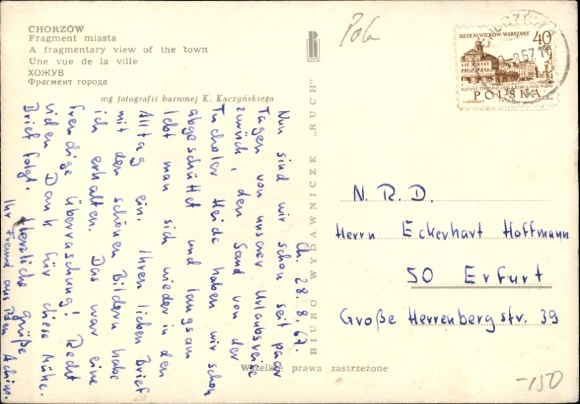 CHORZÓW
Fragment miasta
A fragmentary view of the town
Une vue de la ville
ХОЖУВ
Фрагмент города
mg fotografii barwnej K. Kaczyńskiego
BIURO WYDAWNICZE "RUCH"
Wszelkie prawa zastrzeżone
SIEDEM WIEKÓW WARSZAWY
40 GR
POLSKA
Ch. 28.8.67.
Nun sind wir schon seit paar
Tagen von unserer Urlaubsreise
zurück, den Sand von der
Tucholer Heide haben wir schon
abgeschüttet und langsam
lebt man sich wieder in den
Alltag ein. Ihren lieben Brief
mit den schönen Bildern habe
ich erhalten. Das war eine
freudige Überraschung! Recht
vielen Dank für diese Mühe.
Brief folgt. Herzliche Grüße
Ihr Freund aus Polen Achim.
N. R. D.
Herrn Eckerhart Hoffmann
50 Erfurt
Große Herrenberg str. 39
-150